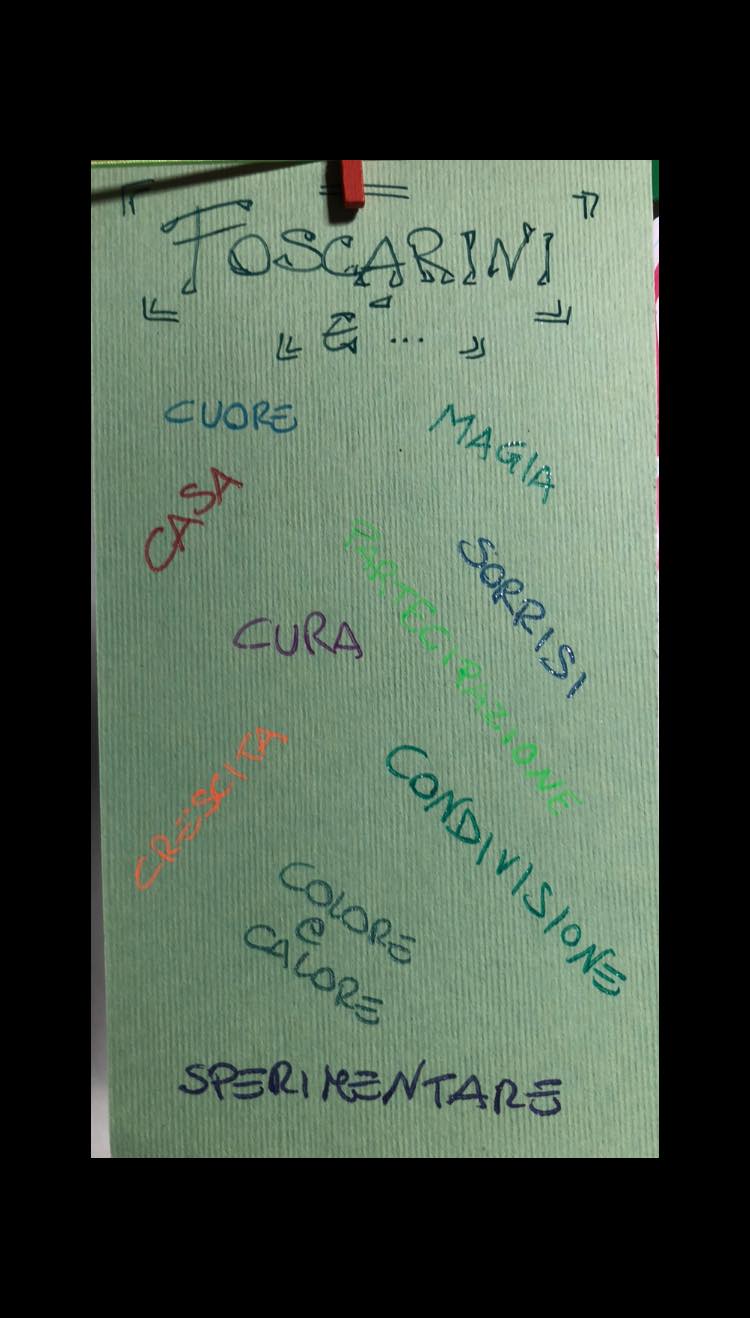 FOSCARINI
È ...
CUORE
MAGIA
CASA
SORRISI
PARTECIPAZIONE
CURA
CRESCITA
CONDIVISIONE
COLORE
e
CALORE
SPERIMENTARE